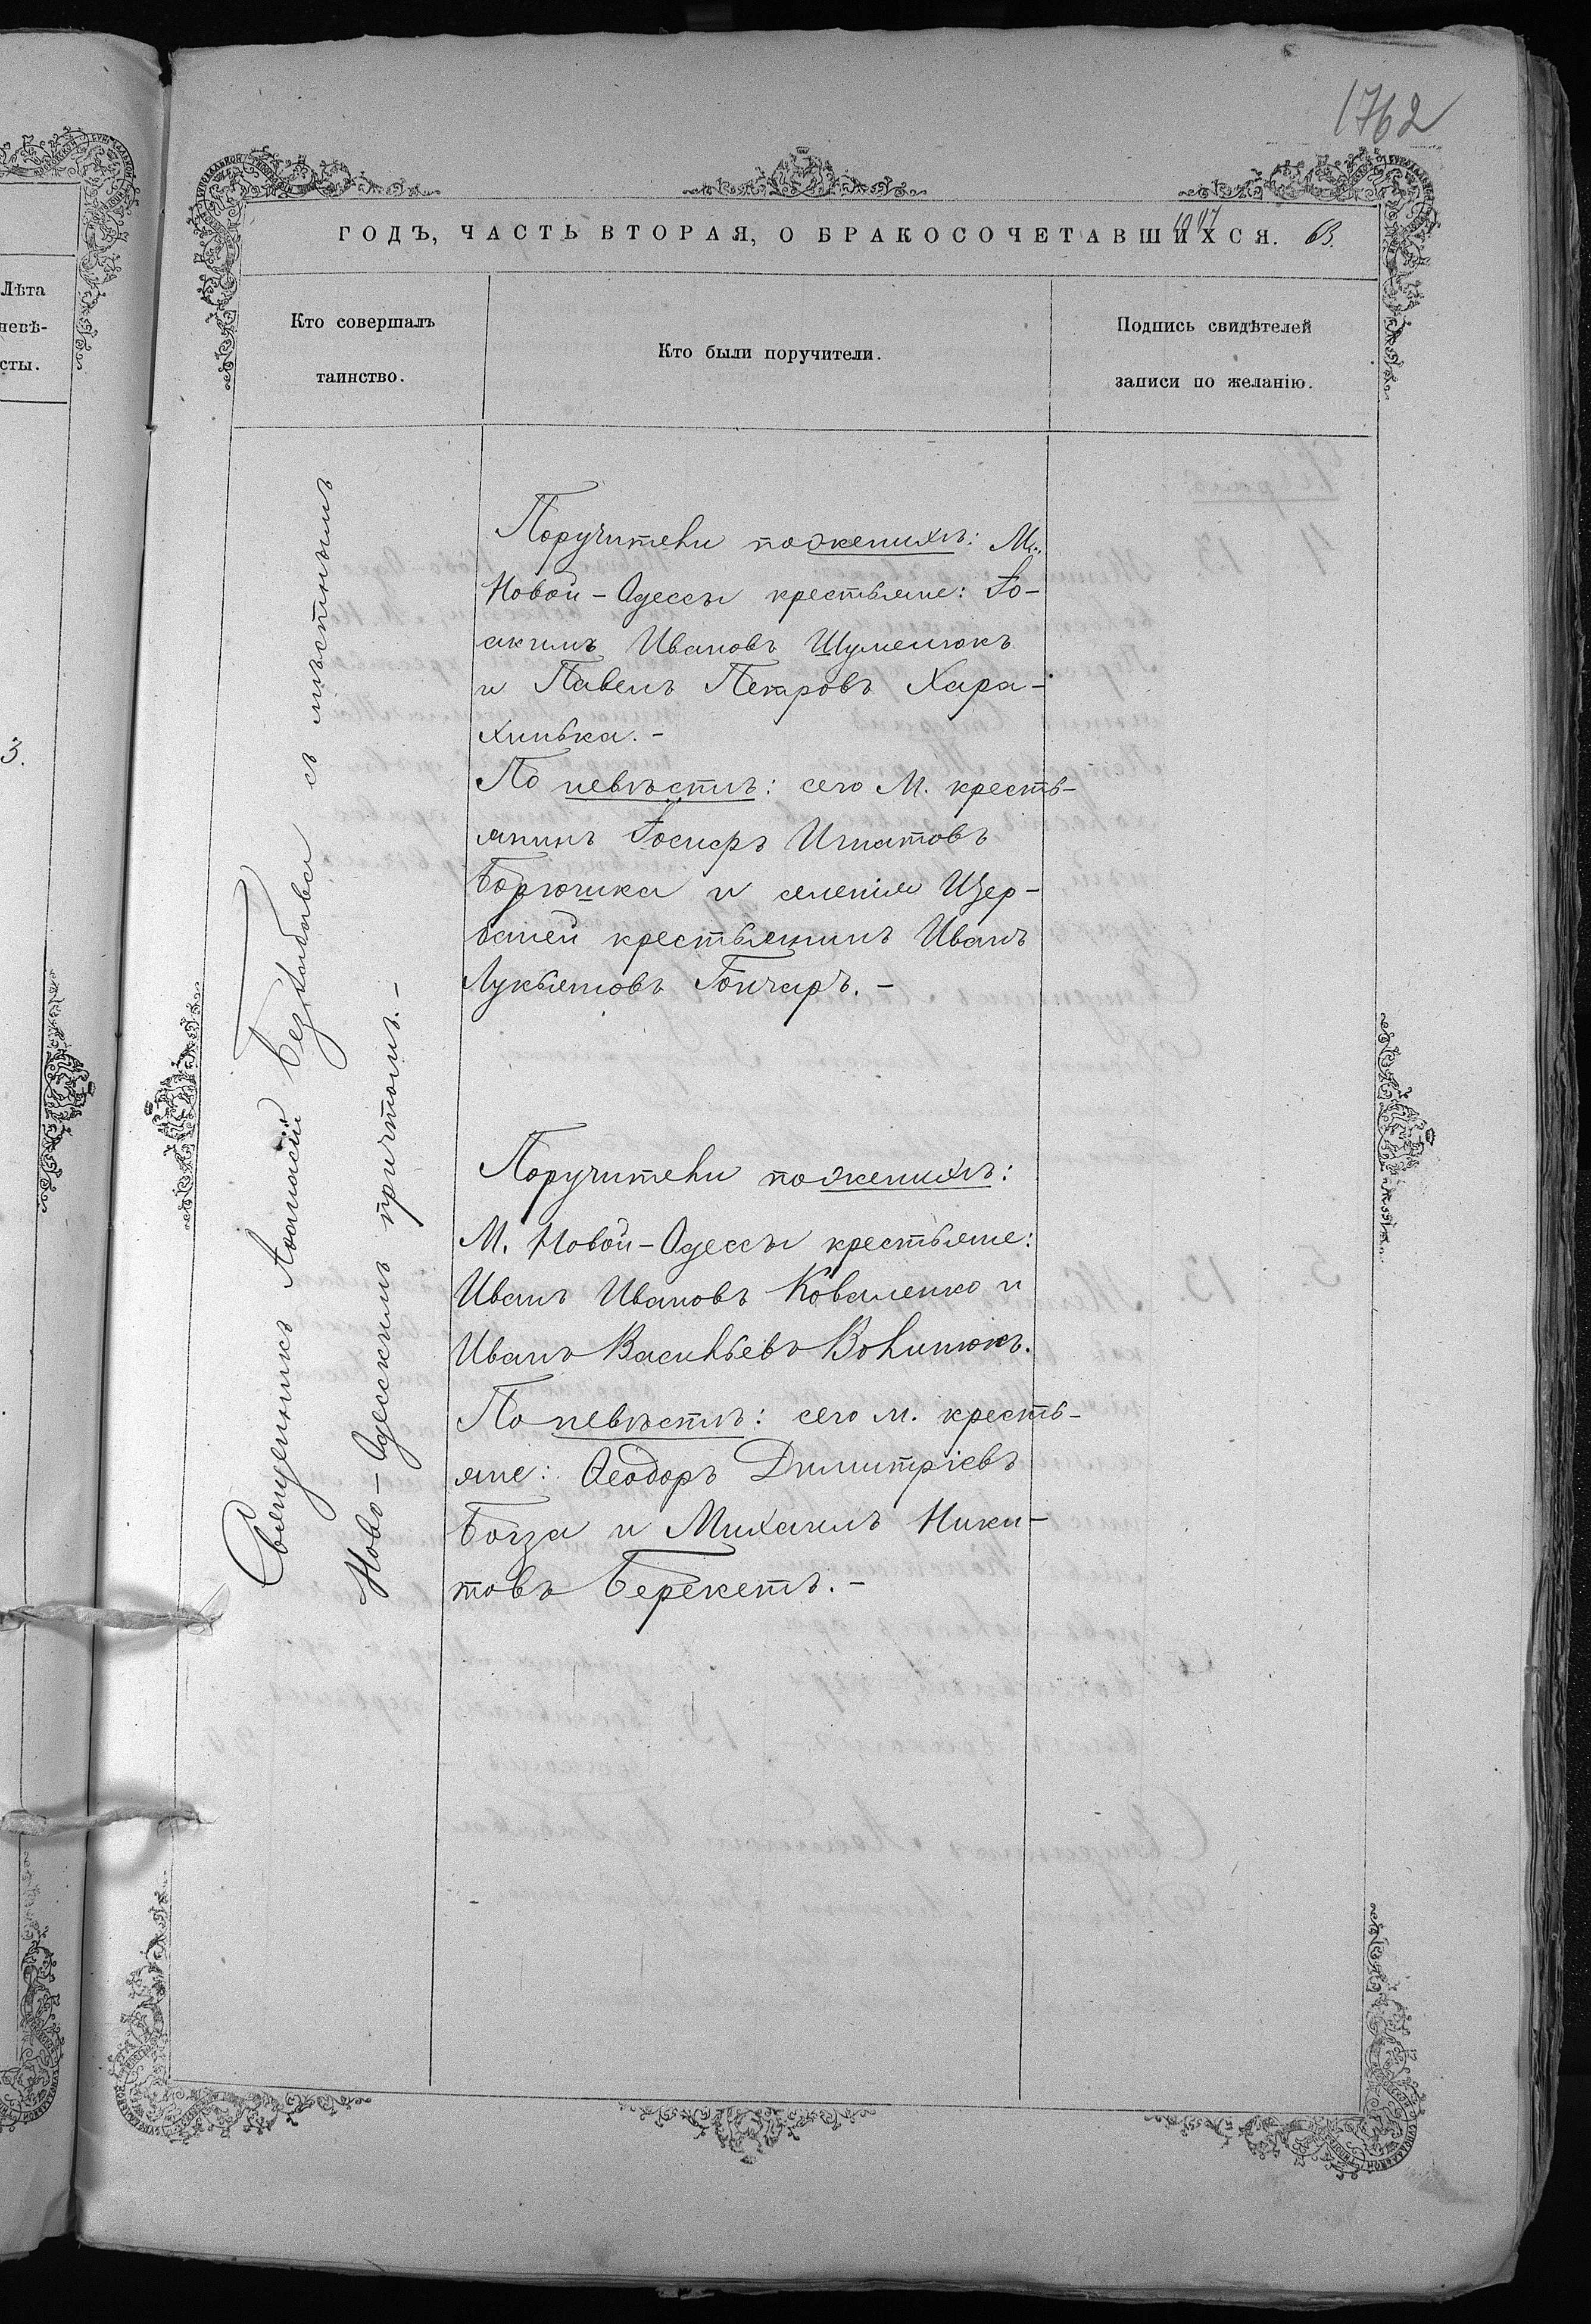 1762
ГОДЪ, ЧАСТЬ ВТОРАЯ, О БРАКОСОЧЕТАВШИХСЯ. 63.
Лѣта
невѣ-
сты.
3.
Кто совершалъ
таинство.
Кто были поручители.
Подпись свидѣтелей
записи по желанію.
Священникъ Аѳанасій с мѣстнымъ
Ново-Одесскимъ причтомъ.-
Поручители по женихѣ: М.
Новой-Одессы крестьяне: Іо-
акимъ Ивановъ Шуменюкъ
и Павелъ Петровъ Хара-
хинька.-
По невѣстѣ: сего М. кресть-
янинъ Іосифъ Игнатовъ
Борюшка и селенія Щер-
баней крестьянинъ Иванъ
Лукьяновъ Гончаръ.-
Поручители по женихѣ:
М. Новой-Одессы крестьяне:
Иванъ Ивановъ Коваленко и
Иванъ Васильевъ Волинюкъ.
По невѣстѣ: сего м. кресть-
яне: Ѳеодоръ Димитріевъ
Богза и Михаилъ Ники-
товъ Берекетъ.-